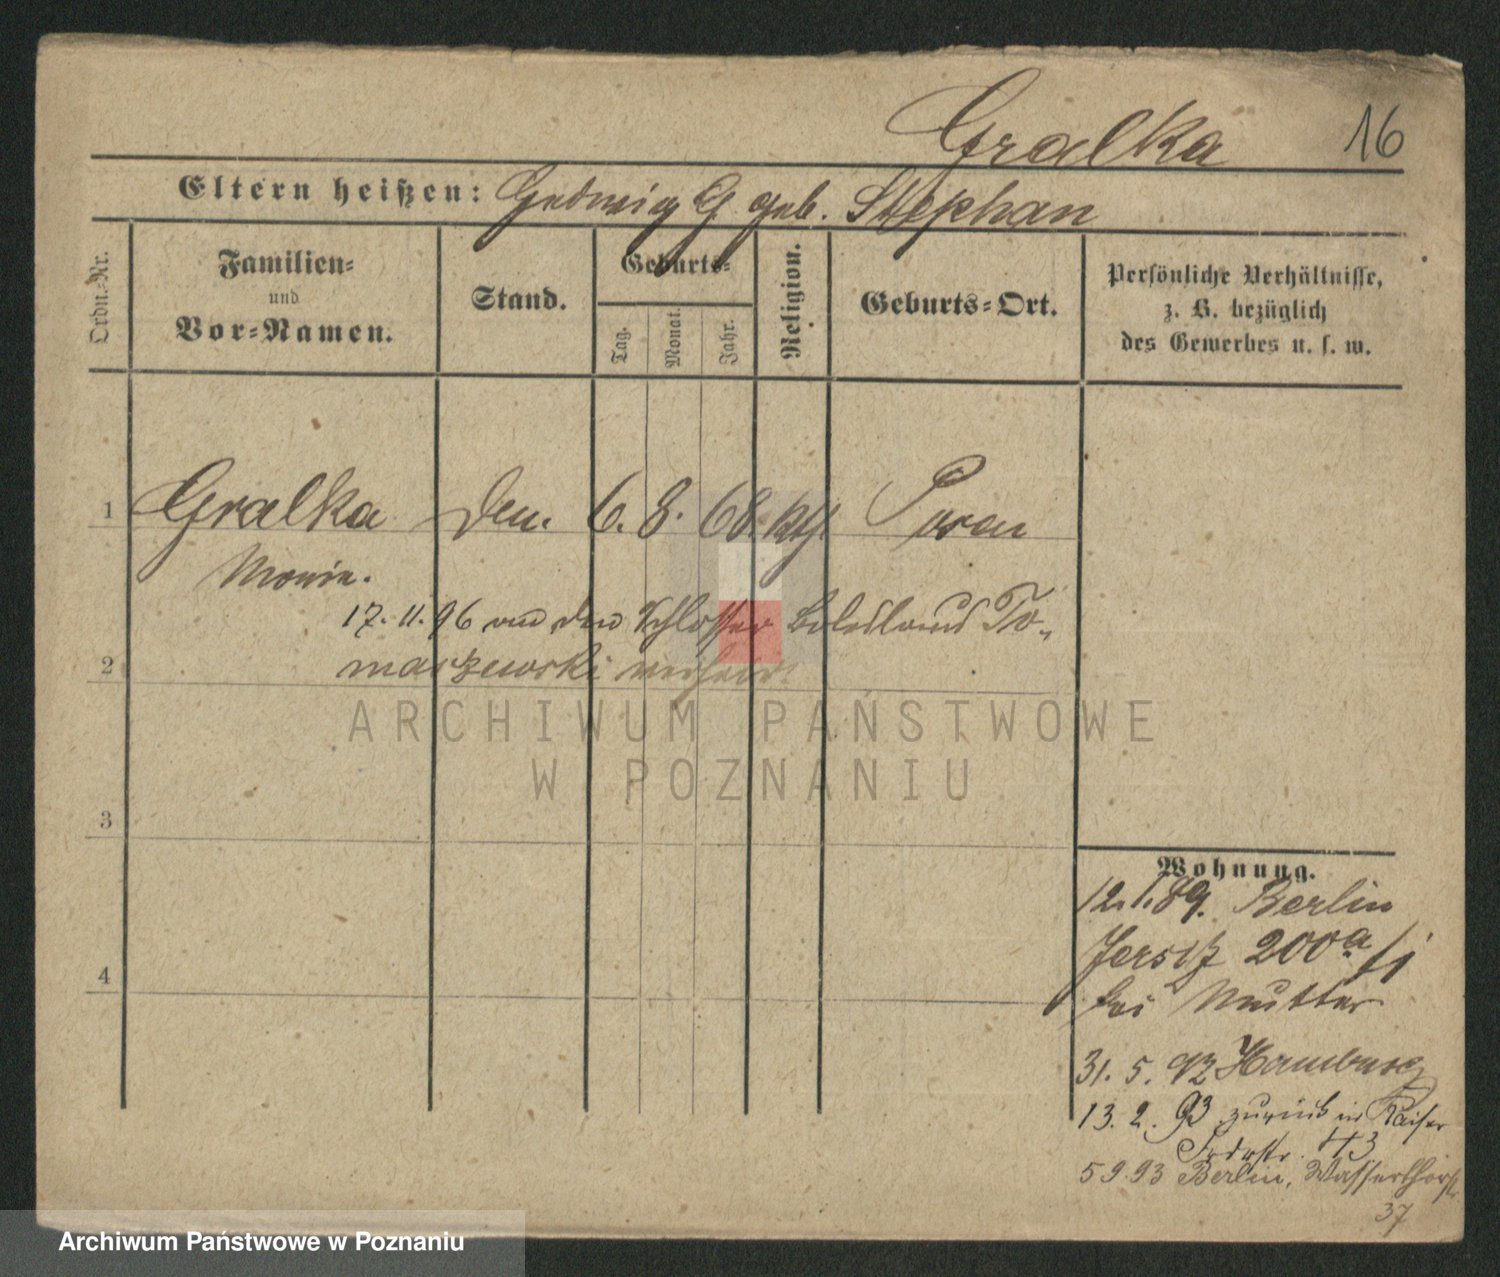 Gralka 16
Eltern heißen: Hedwig G geb. Stephan
Ordn.-Nr.
Familien-
und
Vor-Namen.
Stand.
Geburts-
Tag.
Monat.
Jahr.
Religion.
Geburts-Ort.
Persönliche Verhältnisse,
z. B. bezüglich
des Gewerbes u. s. w.
1 Gralka 6. 8. 68. kth. Posen
17. 11. 96 an den Schlosser Boleslaus To-
2 maszewski verheir.
ARCHIWUM PAŃSTWOWE
W POZNANIU
3
4
Wohnung.
12.1.89. Berlin
Jersitz 200a
bei Mutter
31. 5. 92 Hamburg
13. 2. 93 zurück in Kaiser
Frdrstr.
5 9.93 Berlin, Wasserthorstr
37
Archiwum Państwowe w Poznaniu